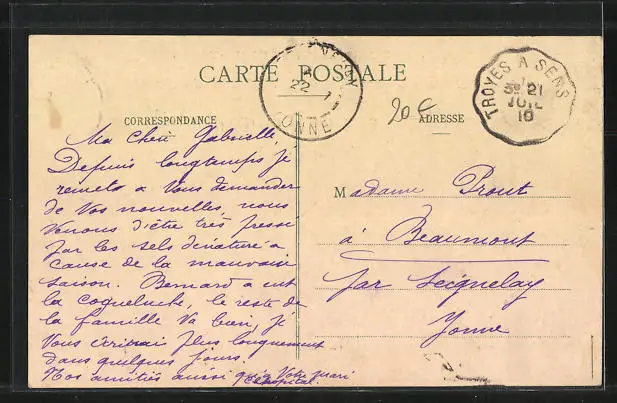 CARTE POSTALE
22
YONNE
TROYES A SENS
3E 21
JUIL
10
20 €
CORRESPONDANCE
ADRESSE
Ma chère Gabrielle,
Depuis longtemps je
remets a vous demander
de vos nouvelles, nous
venons d'être très pressé
par les
a
cause de la mauvaise
saison. Bernard a eut
la coqueluche, le reste de
la famille va bien, je
vous écrirais plus longuement
dans quelques jours.
Nos amitiés aussi Votre mari
Madame Prout
à Beaumont
par Seignelay
Yonne